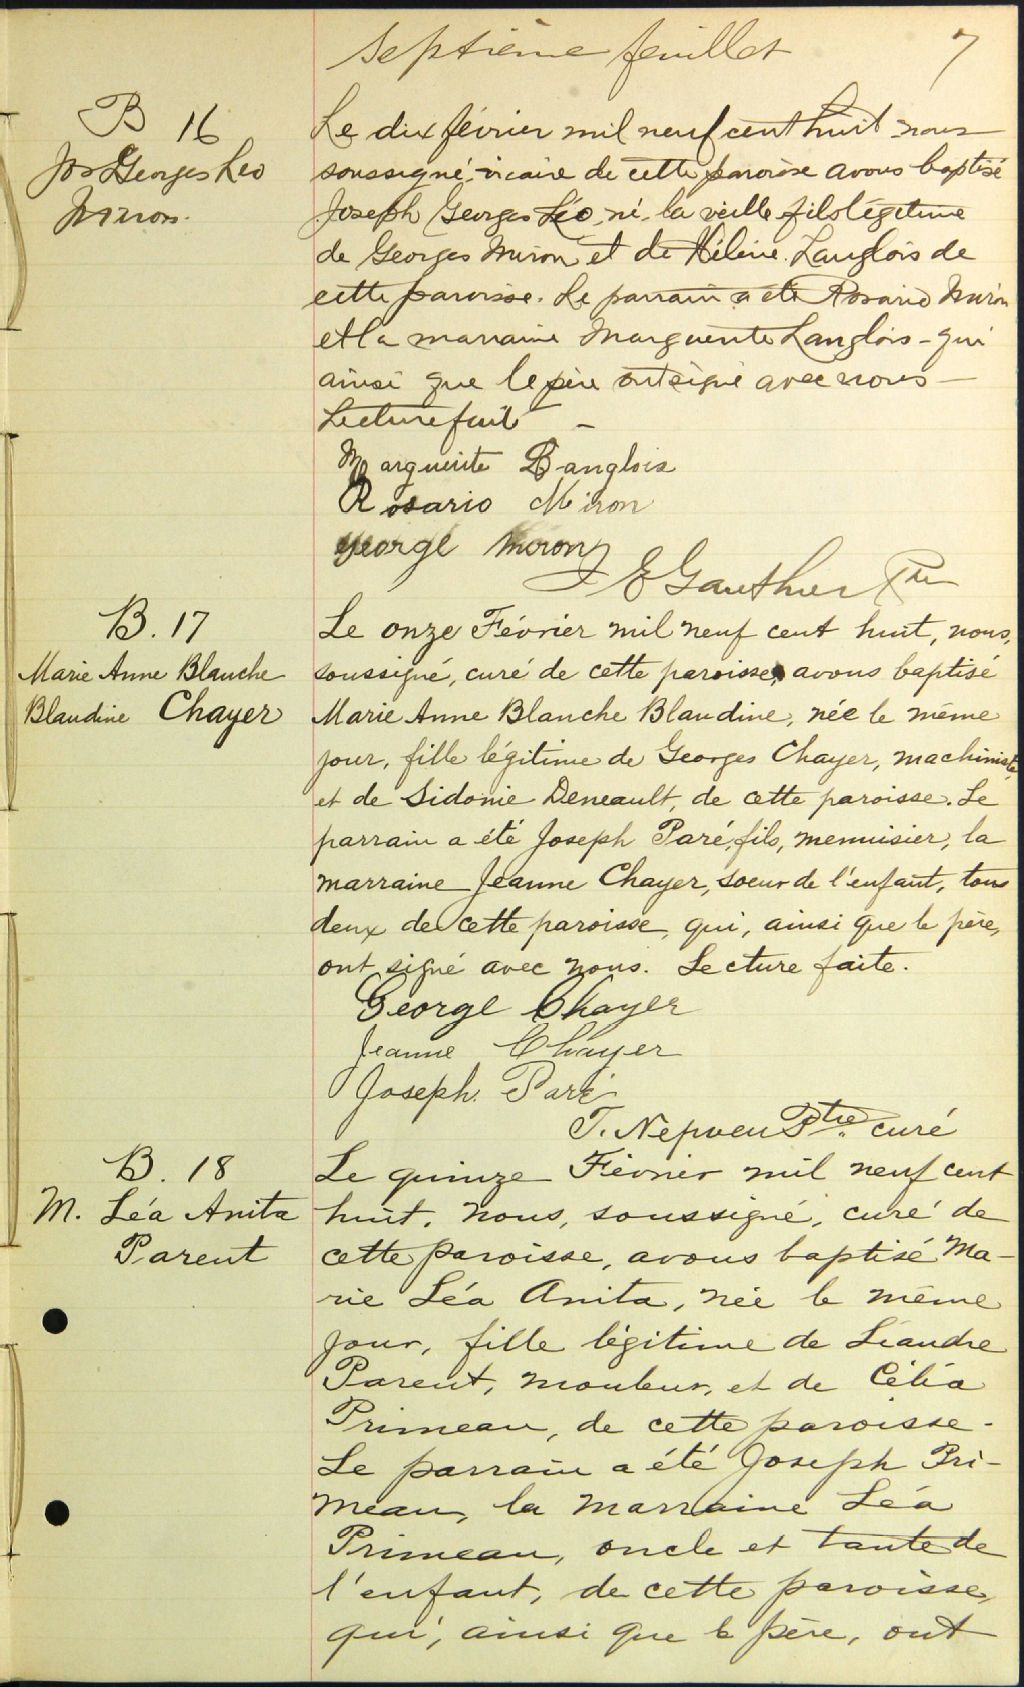 septième feuillet 7
B 16
Jos Georges Leo
Miron.
Le dix février mil neuf cent huit nous
soussigné, vicaire de cette paroisse avons baptisé
Joseph Georges Léo, né la veille fils légitime
de Georges Miron et de Hélène Langlois de
cette paroisse. Le parrain a été Rosario Miron
et la marraine Marguerite Langlois - qui
ainsi que le père ont signé avec nous -
Lecture faite -
Marguerite Langlois
Rosario Miron
George Miron
E Gauthier Ptre
B. 17
Marie Anne Blanche
Blandine Chayer
Le onze Février mil neuf cent huit, nous,
soussigné, curé de cette paroisse, avons baptisé
Marie Anne Blanche Blandine, née le même
jour, fille légitime de Georges Chayer, machiniste,
et de Sidonie Deneault, de cette paroisse. Le
parrain a été Joseph Paré, fils, menuisier, la
marraine Jeanne Chayer, soeur de l'enfant, tous
deux de cette paroisse, qui, ainsi que le père,
ont signé avec nous. Lecture faite.
George Chayer
Jeanne Chayer
Joseph Paré
T. Nepveu Ptre. curé
B. 18
M. Léa Anita
Parent
Le quinze Février mil neuf cent
huit, nous, soussigné, curé de
cette paroisse, avons baptisé Ma-
rie Léa Anita, née le même
jour, fille légitime de Léandre
Parent, mouleur, et de Célia
Primeau, de cette paroisse.
Le parrain a été Joseph Pri-
meau, la marraine Léa
Primeau, oncle et tante de
l'enfant, de cette paroisse,
qui, ainsi que le père, ont